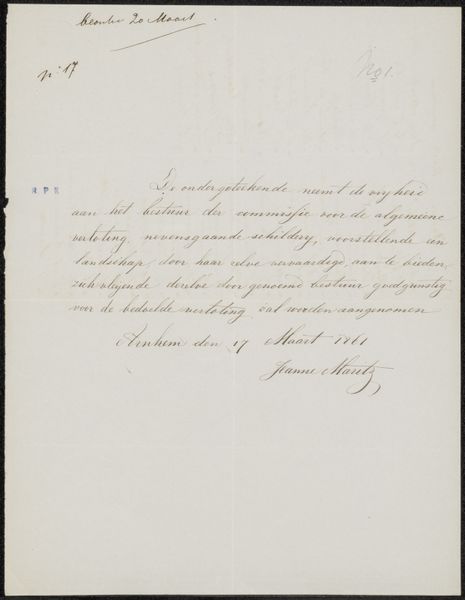 20 Maart.
No 17
No 1.
R P K
De ondergeteekende neemt de vryheid
aan het bestuur der commissie voor de algemeene
verloting, nevensgaande schildery, voorstellende een
landschap, door haar zelve vervaardigd, aan te bieden,
zich vlejende dezelve door genoemd bestuur goedgunstig
voor de bedoelde verloting zal worden aangenomen
Arnhem den 17 Maart 1861
Jeanne Maritz